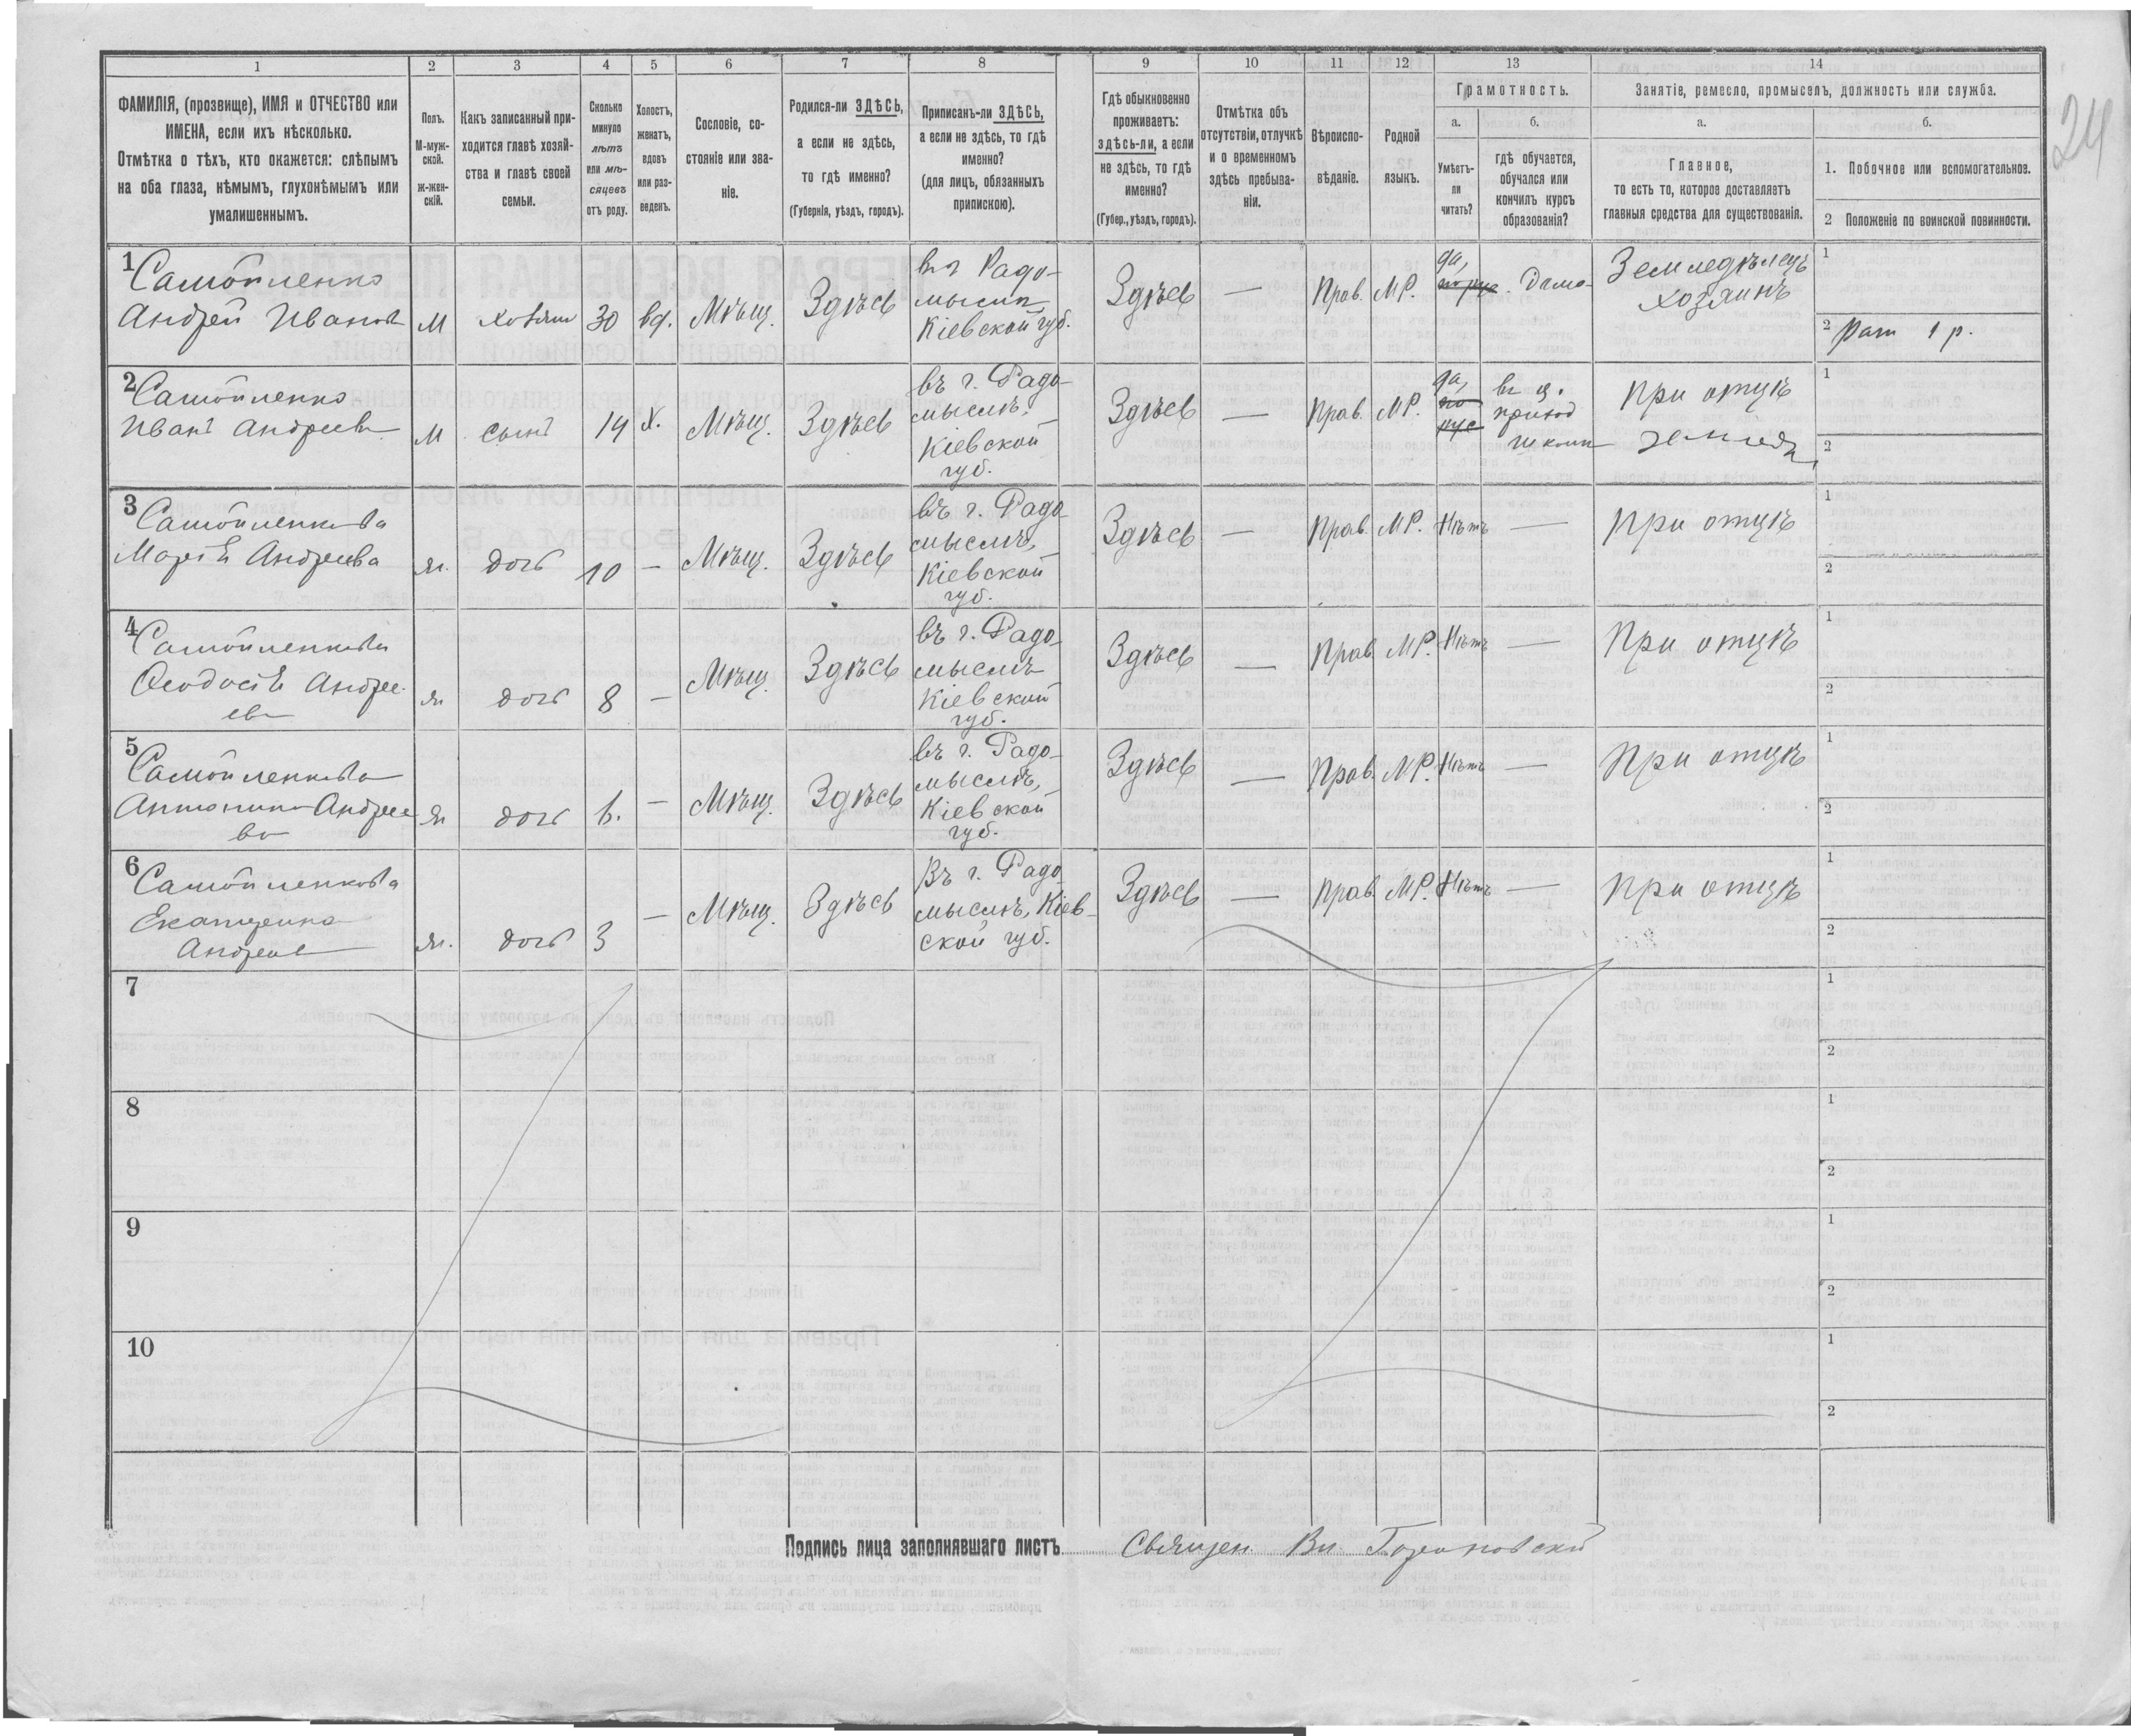 24
1 2 3 4 5 6 7 8 9 10 11 12 13 14
ФАМИЛІЯ, (прозвище), ИМЯ и ОТЧЕСТВО или
ИМЕНА, если ихъ нѣсколько.
Отмѣтка о тѣхъ, кто окажется: слѣпымъ
на оба глаза, нѣмымъ, глухонѣмымъ или
умалишеннымъ.
Полъ.
М-муж-
ской.
ж-жен-
скій.
Какъ записанный при-
ходится главѣ хозяй-
ства и главѣ своей
семьи.
Сколько
минуло
лѣтъ
или мѣ-
сяцевъ
отъ роду.
Холостъ,
женатъ,
вдовъ
или раз-
веденъ.
Сословіе, со-
стояніе или зва-
ніе.
Родился-ли ЗДѢСЬ,
а если не здѣсь,
то гдѣ именно?
(Губернія, уѣздъ, городъ).
Приписанъ-ли ЗДѢСЬ,
а если не здѣсь, то гдѣ
именно?
(для лицъ, обязанныхъ
припискою).
Гдѣ обыкновенно
проживаетъ:
здѣсь-ли, а если
не здѣсь, то гдѣ
именно?
(Губер., уѣздъ, городъ).
Отмѣтка объ
отсутствіи, отлучкѣ
и о временномъ
здѣсь пребыва-
ніи.
Вѣроиспо-
вѣданіе.
Родной
языкъ.
Грамотность.
а.
Умѣетъ-
ли
читать?
б.
гдѣ обучается,
обучался или
кончилъ курсъ
образованія?
Занятіе, ремесло, промыселъ, должность или служба.
а.
Главное,
то есть то, которое доставляетъ
главныя средства для существованія.
б.
1. Побочное или вспомогательное.
2 Положеніе по воинской повинности.
1
Самойленко
Андрей Иванов
М
хозяин
30
вд.
Мѣщ.
Здѣсь
въ г Радо-
мыслѣ
Кіевской губ.
Здѣсь
—
Прав.
МР.
да,
по рус.
Дома
Земледѣлецъ
хозяинъ
1
2 Рат 1 р.
2
Самойленко
Иванъ Андреев
М
сынъ
14
Х.
Мѣщ.
Здѣсь
въ г. Радо-
мыслѣ,
Кіевской
губ.
Здѣсь
—
Прав.
МР.
да,
по
рус
въ ц.
приход
школѣ
При отцѣ
землед
1
2
3
Самойленкова
Марія Андреева
ж.
дочь
10
—
Мѣщ.
Здѣсь
въ г. Радо-
мыслѣ,
Кіевской
губ.
Здѣсь
—
Прав.
МР.
Нѣтъ
—
При отцѣ
1
2
4
Самойленкова
Ѳеодосія Андре-
ева
ж
дочь
8
—
Мѣщ.
Здѣсь
въ г. Радо-
мыслѣ
Кіевской
губ.
Здѣсь
—
Прав
МР.
Нѣтъ
—
При отцѣ
1
2
5
Самойленкова
Антонина Андрее
ва
ж
дочь
—
Мѣщ.
Здѣсь
въ г. Радо-
мыслѣ,
Кіевской
губ.
Здѣсь
—
Прав.
МР.
Нѣтъ
—
При отцѣ
1
2
6
Самойленкова
Екатерина
Андреев
ж.
дочь
3
—
Мѣщ.
Здѣсь
Въ г. Радо
мыслѣ, Кіев-
ской губ.
Здѣсь
—
Прав
МР.
Нѣтъ
—
При отцѣ
1
2
7
1
2
8
1
2
9
1
2
10
1
2
Подпись лица заполнявшаго листъ Священ Вл.